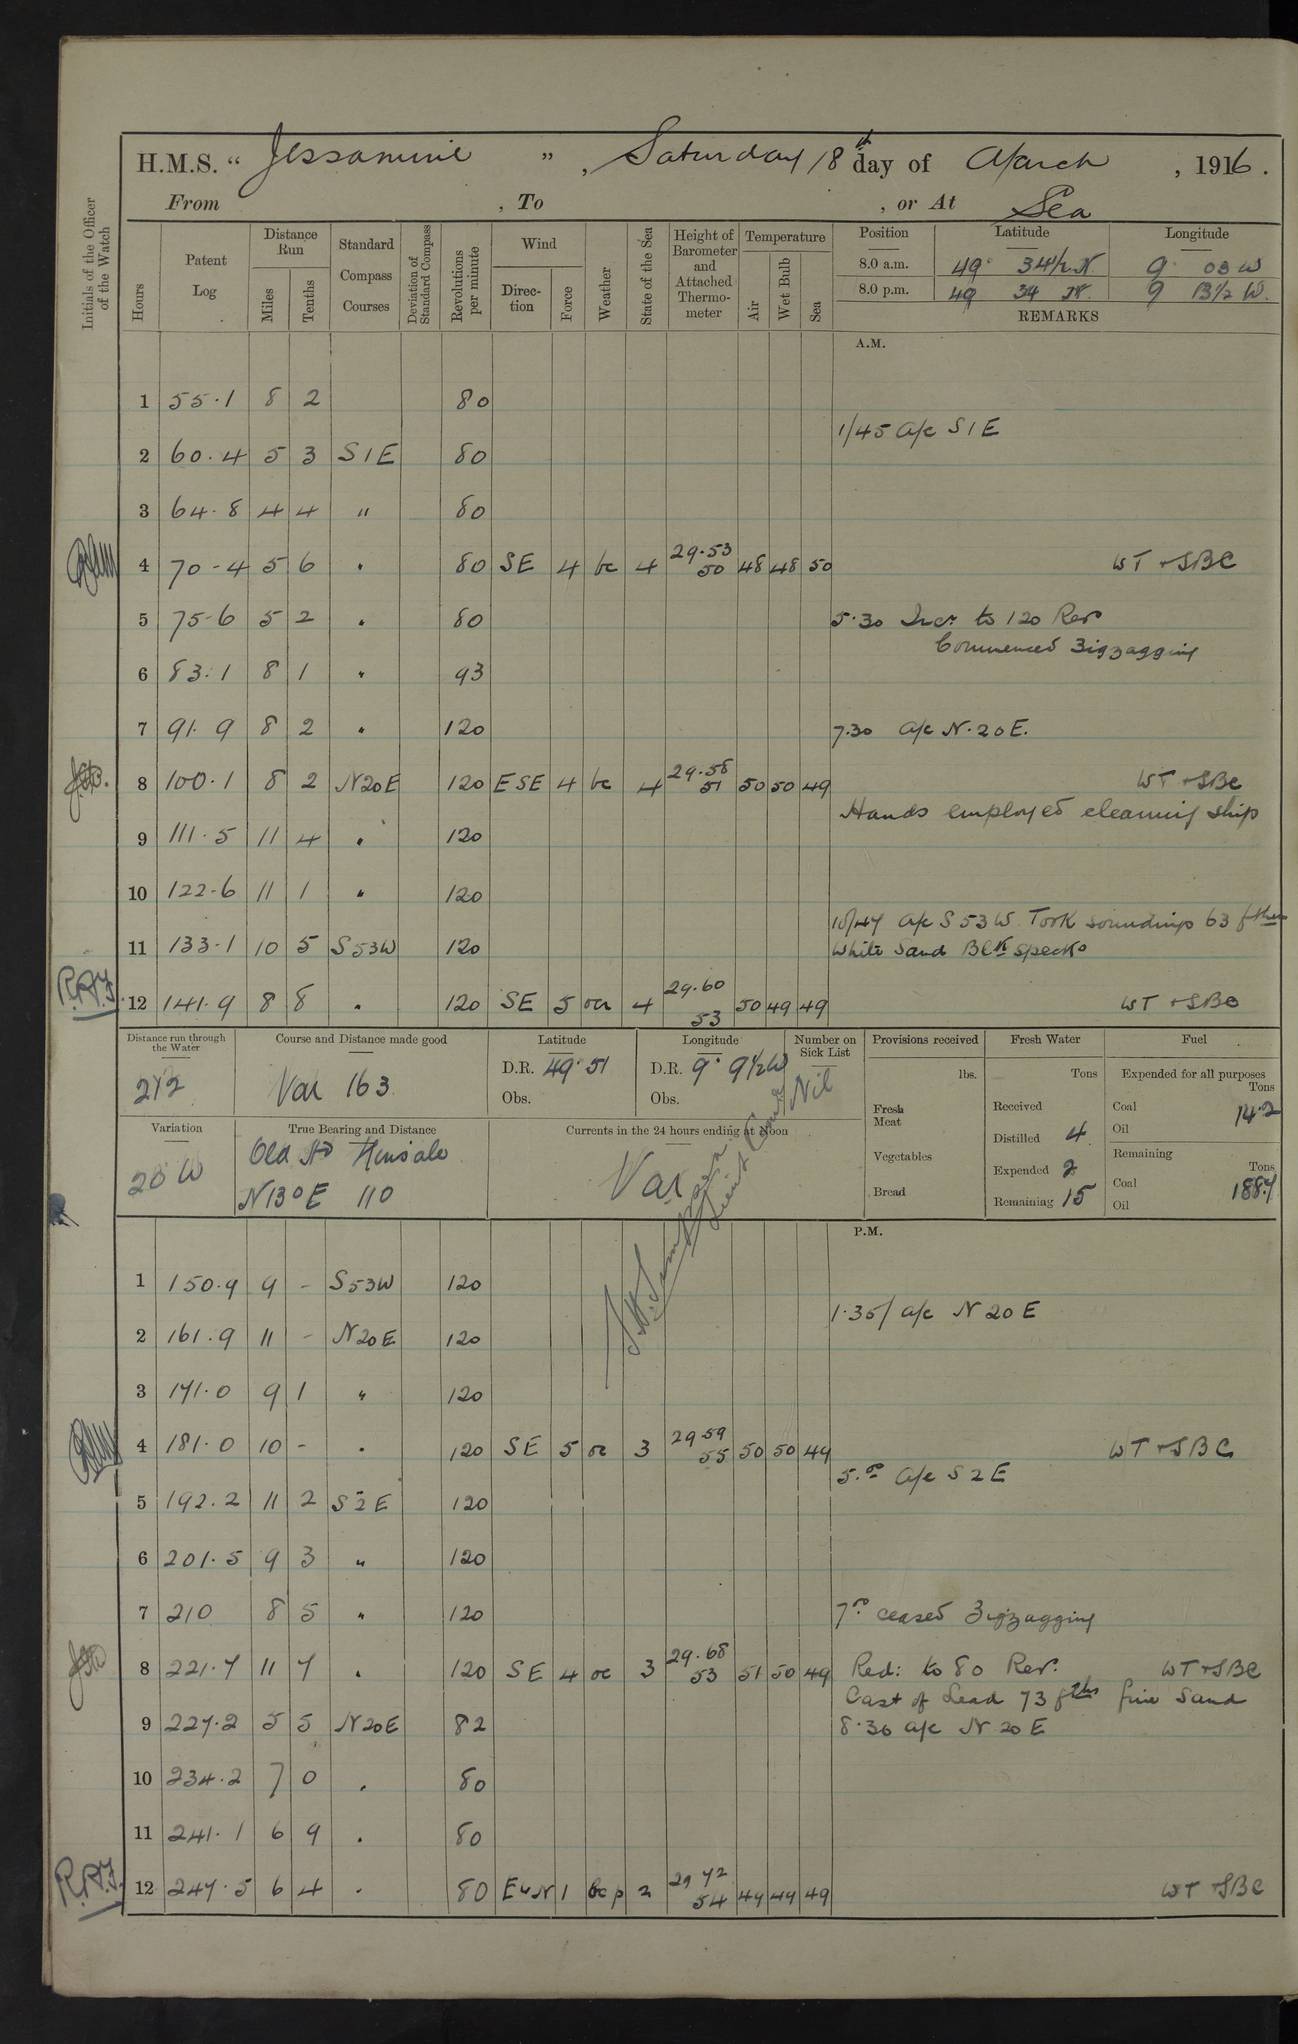 H.M.S. “ Jessamine ” , Saturday 18th day of March , 1916 .
From , To , or At Sea
Initials of the Officer of the Watch
Hours
Patent Log
Distance Run
Miles
Tenths
Standard Compass Courses
Deviation of Standard Compass
Revolutions per minute
Wind
Direction
Force
Weather
State of the Sea
Height of Barometer and Attached Thermometer
Temperature
Air
Wet Bulb
Sea
Position Latitude Longitude
8.0 a.m. 49° 34½ N. 9° 03 W
8.0 p.m. 49 34 N. 9 13½ W.
REMARKS
A.M.
1 55.1 8 2 80
1/45 a/c S 1 E
2 60.4 5 3 S 1 E 80
3 64.8 4 4 " 80
4 70.4 5 6 " 80 SE 4 bc 4 29.53 50 48 48 50 WT + SBC
5 75.6 5 2 " 80 5.30 Incr to 120 Revs
Commenced Zigzagging
6 83.1 8 1 " 93
7 91.9 8 2 " 120 7.30 a/c N.20E.
8 100.1 8 2 N20E 120 ESE 4 bc 4 29.58 51 50 50 49 WT + SBC
Hands employed cleaning ship
9 111.5 11 4 " 120
10 122.6 11 1 " 120
10/47 a/c S 53 W Took soundings 63 fthms
11 133.1 10 5 S53W 120 White Sand Blk specks
R.A.F. 12 141.9 8 8 " 120 SE 5 4 29.60 53 50 49 49 WT + SBC
Distance run through the Water
212
Course and Distance made good
Var 163
Latitude
D.R. 49° 51
Obs.
Longitude
D.R. 9° 9½ W
Obs.
Number on Sick List
Nil
Provisions received
lbs.
Fresh Meat
Vegetables
Bread
Fresh Water
Tons
Received
Distilled 4
Expended 2
Remaining 15
Fuel
Expended for all purposes
Tons
Coal 14.2
Oil
Remaining
Tons
Coal 188.7
Oil
Variation
20 W
True Bearing and Distance
Old Hd Kinsale
N13°E 110
Currents in the 24 hours ending at Noon
Var
Lieut Comdr
P.M.
1 150.9 9 - S53W 120
1.35/ a/c N 20 E
2 161.9 11 - N20E 120
3 171.0 9 1 " 120
4 181.0 10 - " 120 SE 5 oc 3 29.59 55 50 50 49 WT + SBC
5.00 a/c S 2 E
5 192.2 11 2 S 2 E 120
6 201.5 9 3 " 120
7 210 8 5 " 120 7.00 ceased Zigzagging
8 221.7 11 7 " 120 SE 4 oc 3 29.68 53 51 50 49 Red: to 80 Rev: WT + SBC
Cast of Lead 73 fths fine Sand
9 227.2 5 5 N20E 82 8.30 a/c N 20 E
10 234.2 7 0 " 80
11 241.1 6 9 " 80
R.A.F. 12 247.5 6 4 " 80 EbN 1 bcp 2 29 72 54 49 49 49 WT + SBC